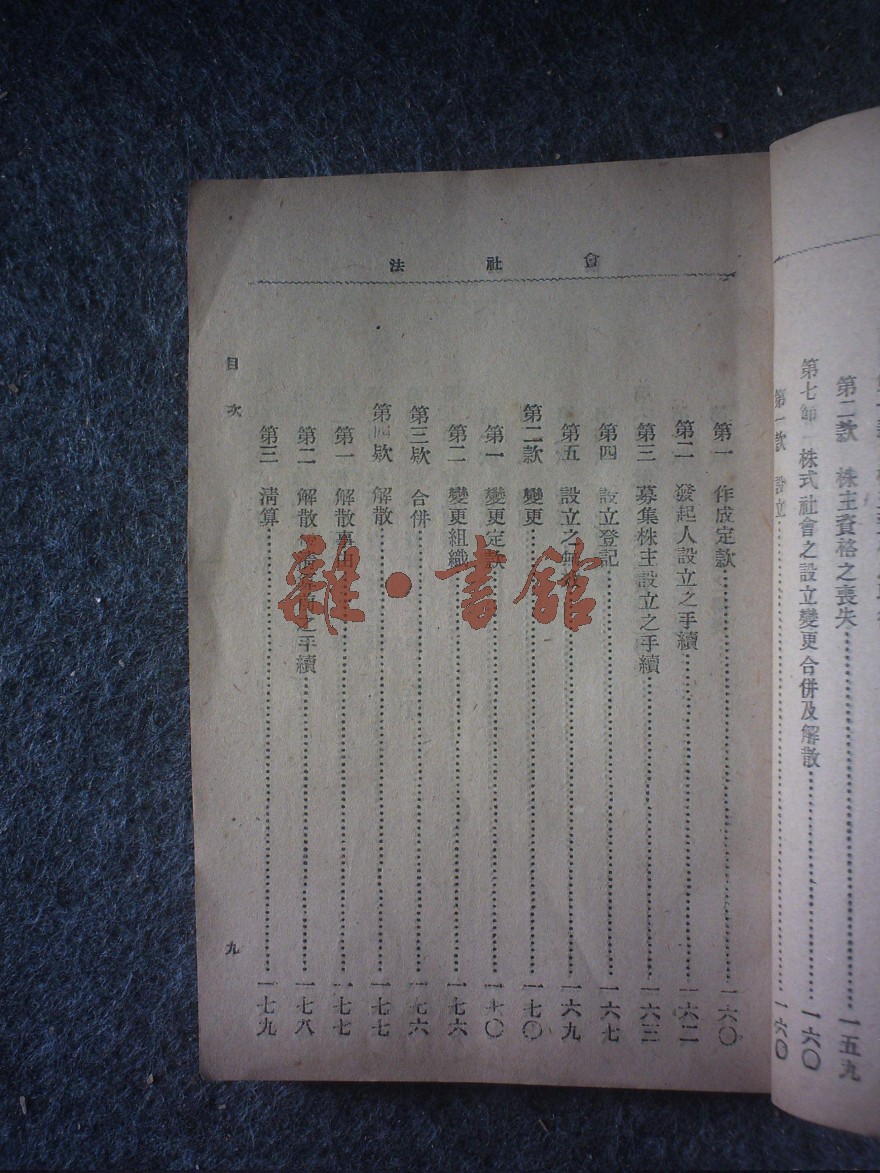 第二款 株主資格之喪失……一五九
第七節 株式社會之設立變更合併及解散……一六〇
第一款 設立……一六〇
會社法
第一 作成定款……一六〇
第二 發起人設立之手續……一六二
第三 募集株主設立之手續……一六三
第四 設立登記……一六七
第五 設立之無……一六九
第二款 變更……一七〇
第一 變更定款……一七〇
第二 變更組織……一七六
第三欵 合併……一七六
第四欵 解散……一七七
第一 解散事由……一七七
第二 解散之手續……一七八
第三 淸算……一七九
目次
九
雜·書館